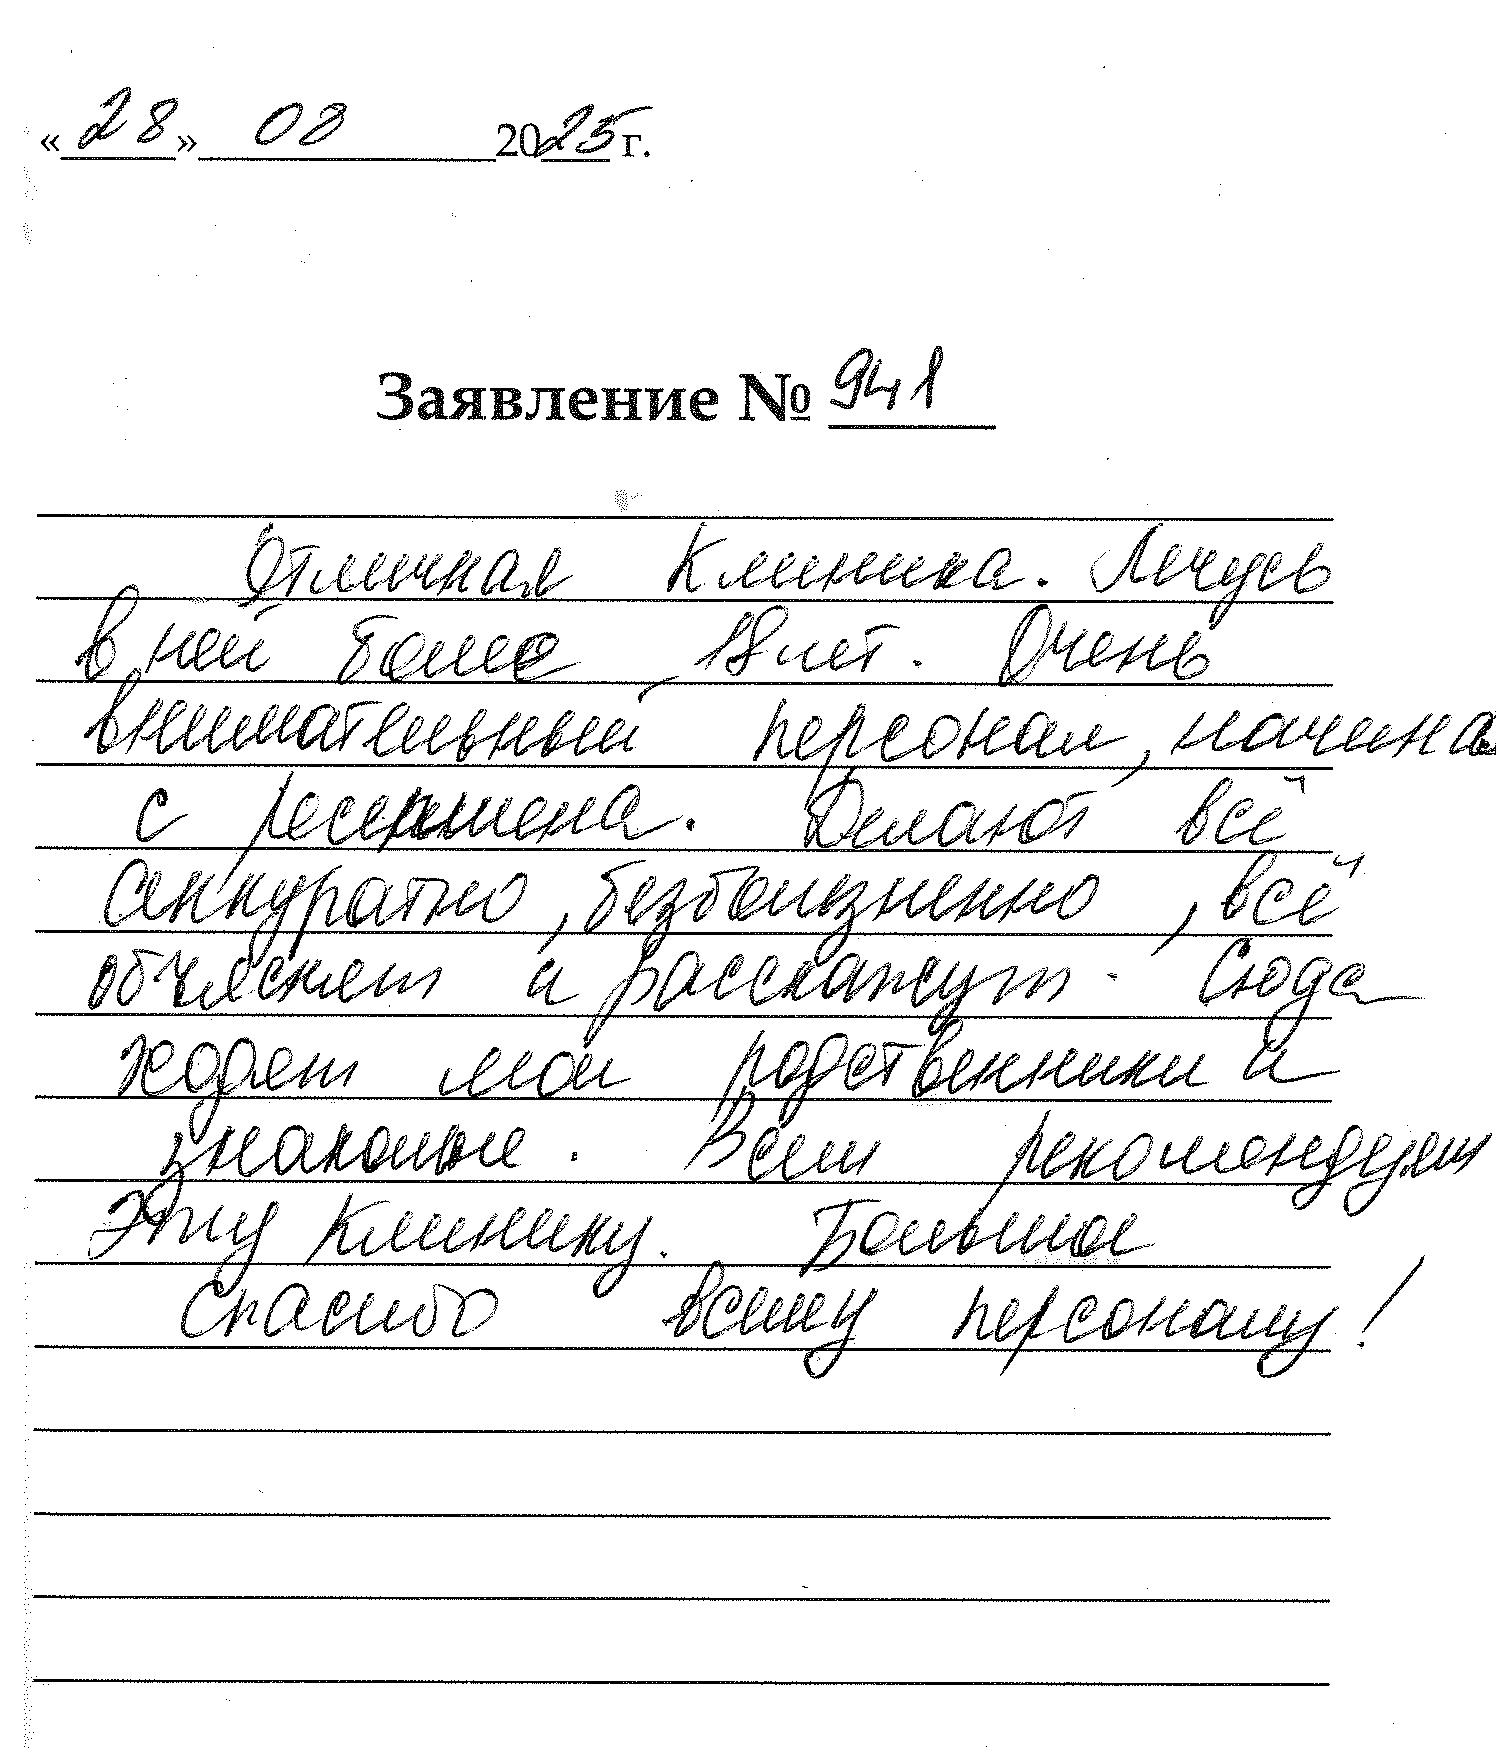 «28» 08 2025 г.
Заявление № 941
Отличная клиника. Лечусь
в ней более 18 лет. Очень
внимательный персонал, начиная
с ресепшена. Делают всё
аккуратно, безболезненно, всё
объяснят и расскажут. Сюда
ходят мои родственники и
знакомые. Всем рекомендуем
Эту клинику. Большое
спасибо всему персоналу!